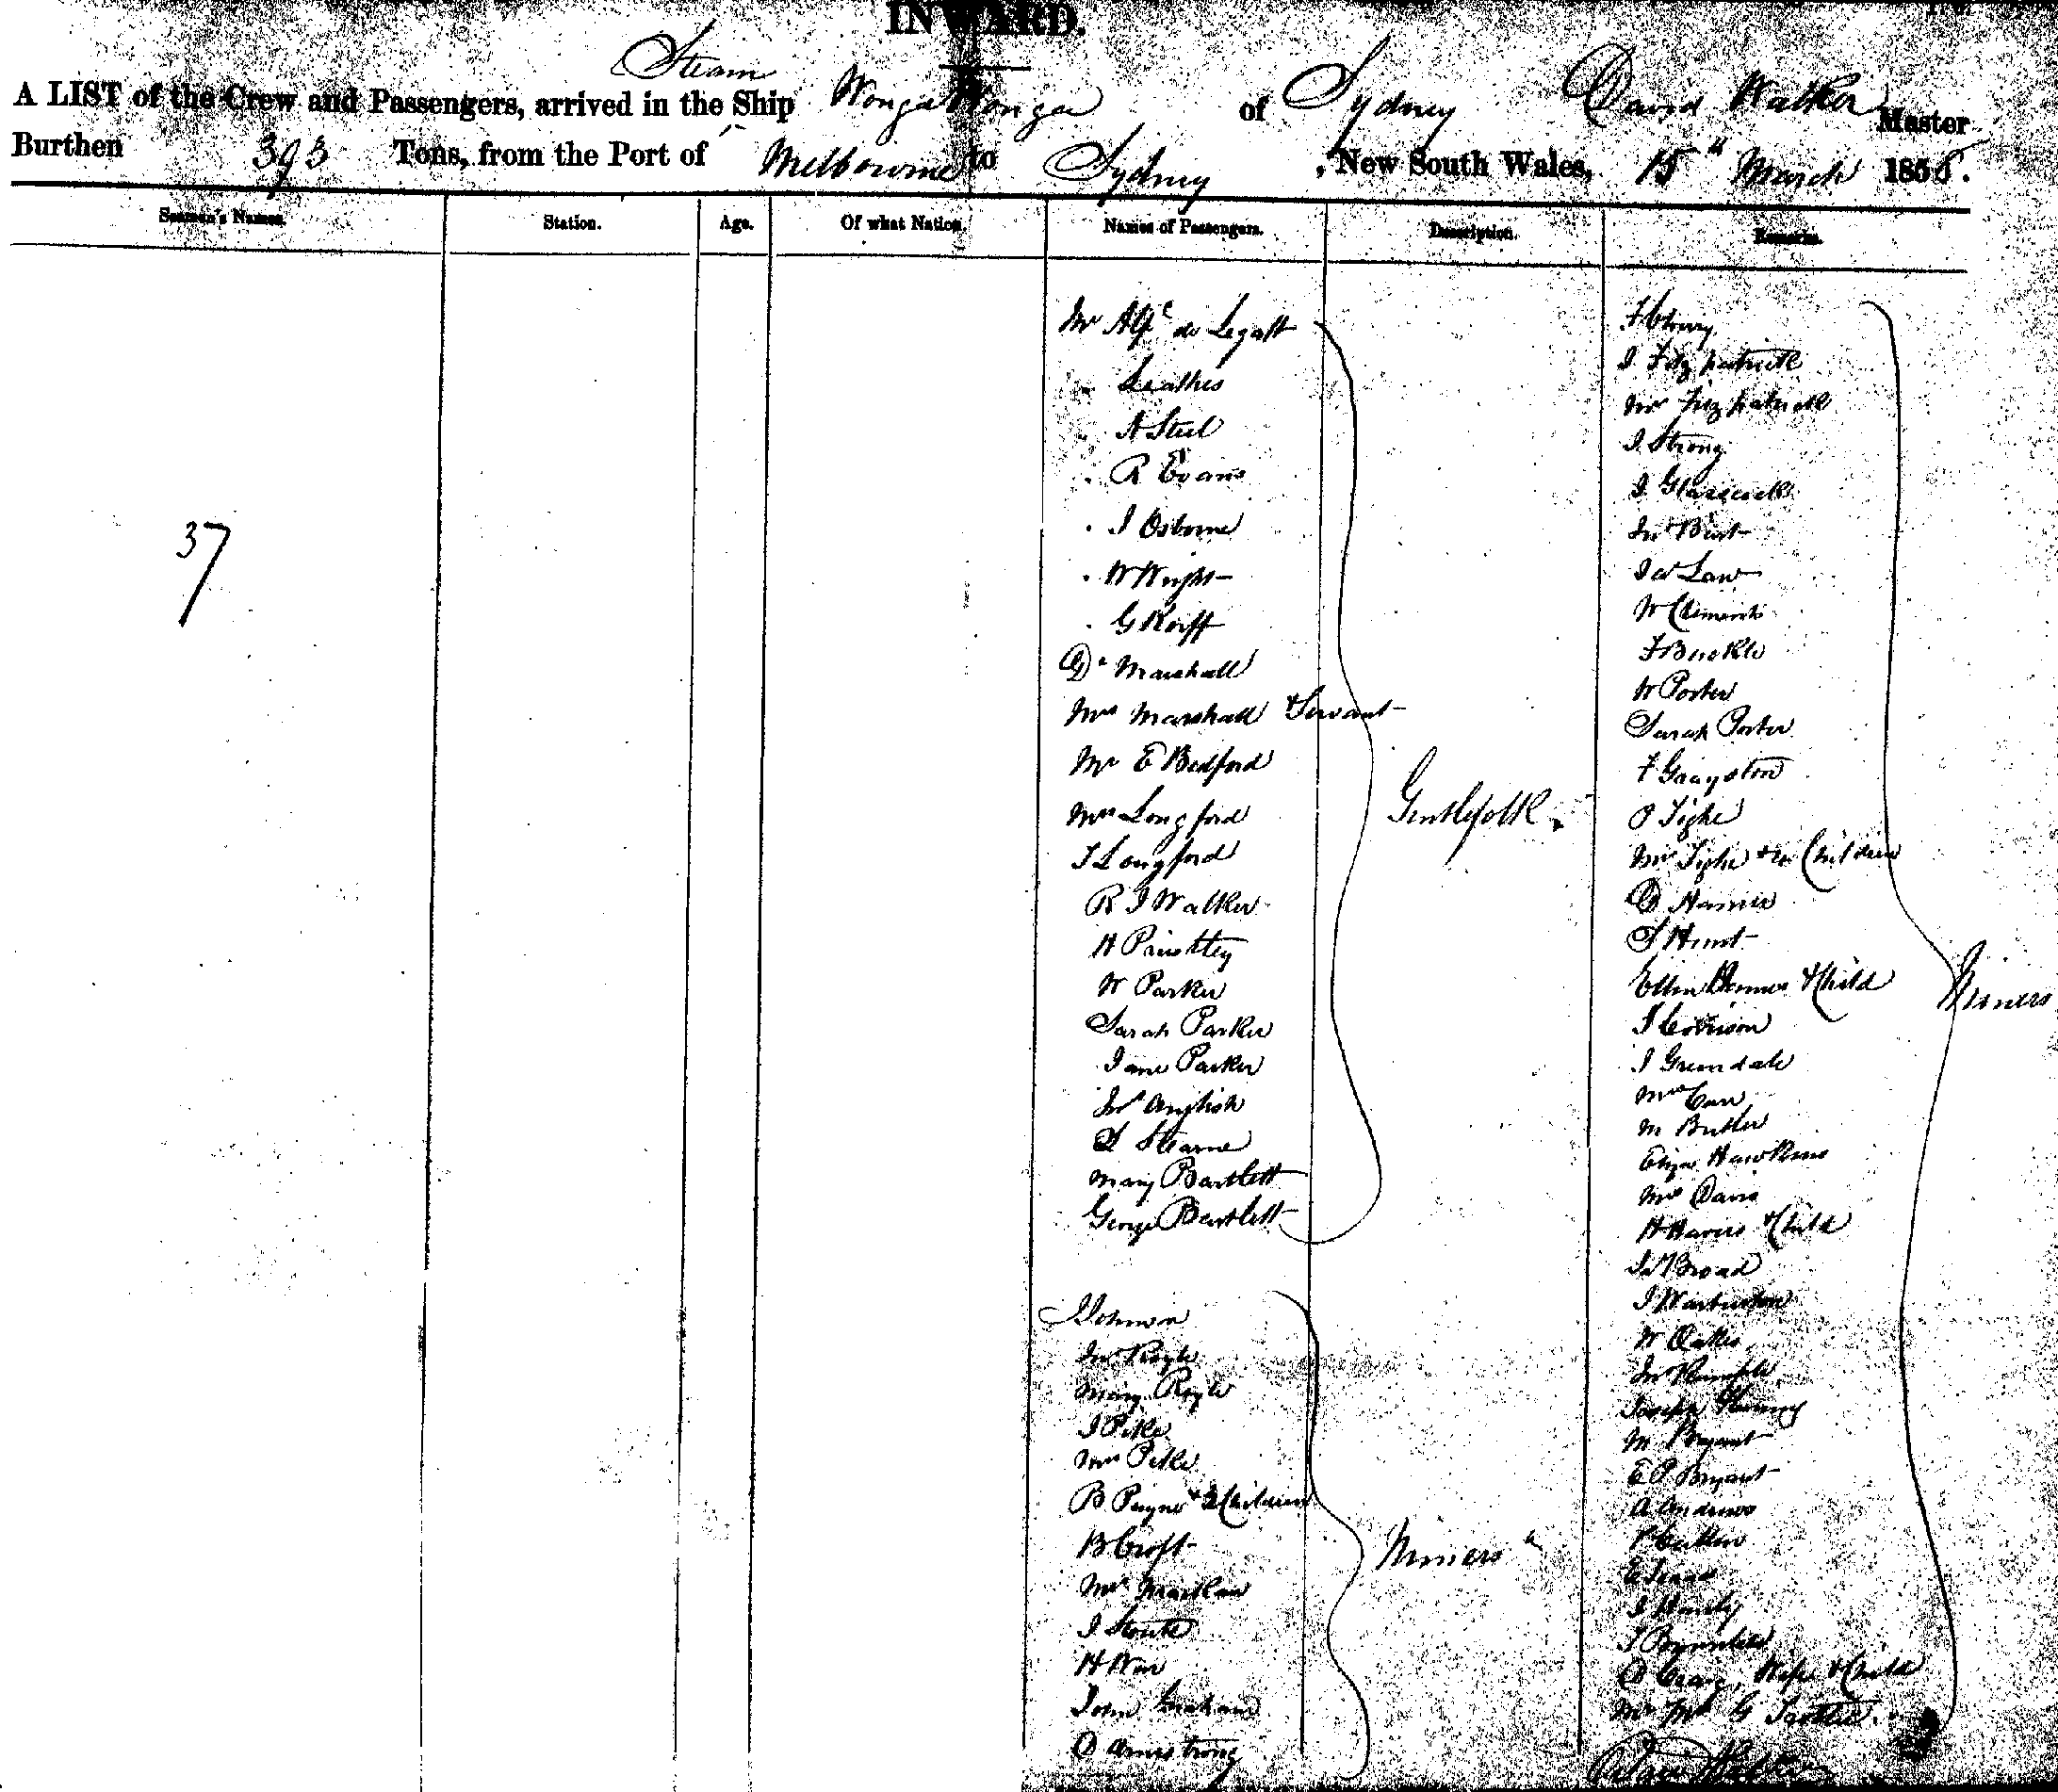 INWARD.
Steam
A LIST of the Crew and Passengers, arrived in the Ship Wonga Wonga of Sydney David Walker Master
Burthen 393 Tons, from the Port of Melbourne to Sydney, New South Wales, 15th March 1858.
Seamen's Names. Station. Age. Of what Nation. Names of Passengers. Description. Remarks.
37
Mr de Legatt
Leathes
A Steel
R Evans
J Osborne
W Wright
G Korff
Dr Marshall
Mrs Marshall & Servant
Mr E Bedford
Mrs Longford
T Longford
R J Walker
H
W Parker
Sarah Parker
Jane Parker
Jno English
Stearne
Mary Bartlett
George Bartlett
Gentlefolk.
Johnson
Jno Royle
Mary Royle
J Pike
Mrs Pike
B Payne & 2 Children
B Croft
Mrs
J
H
John Graham
D Armstrong
Miners
F
J Fitzpatrick
Mrs Fitzpatrick
J Strong
J Glasscock
Jno
J W Law
W Clements
F Buckle
W Porter
Sarah Porter
F Grayston
P Tighe
Mrs Tighe & Children
D
Hunt
Ellen & Child
J
J Greendale
Mrs Carr
M Butler
Eliza Hawkins
Mrs Davis
H & Child
Jno Broad
J Warburton
W Oakes
Jno
Joseph
M Bryant
E P Bryant
A Andrews
E
J
J
D Craig, Wife & Child
Mr Mrs G
Miners
David Walker